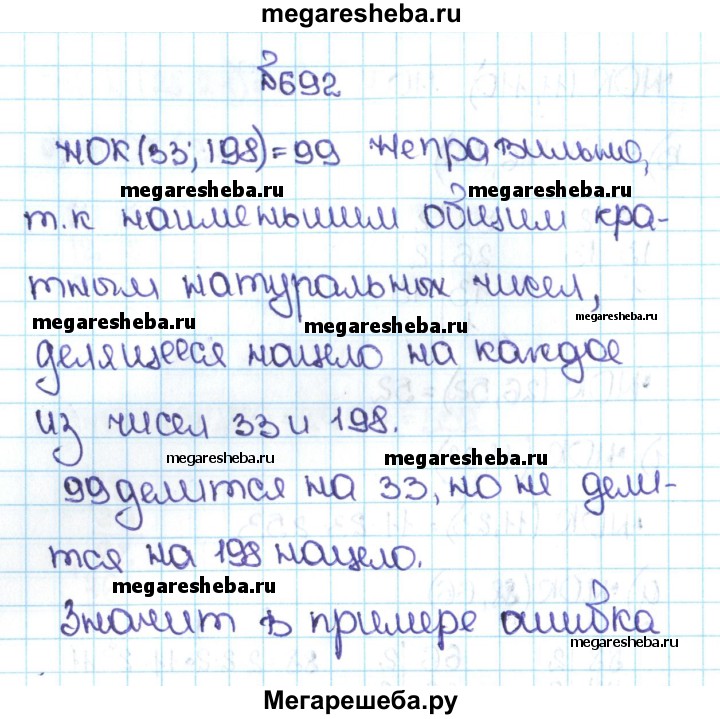 megaresheba.ru
№692
НОК(33; 198)=99 неправильно,
megaresheba.ru
т.к наименьшим общим кра-
тным натуральных чисел,
megaresheba.ru
megaresheba.ru
megaresheba.ru
делящееся нацело на каждое
из чисел 33 и 198.
megaresheba.ru
megaresheba.ru
99 делится на 33, но не дели-
тся на 198 нацело.
megaresheba.ru
Значит в примере ошибка
megaresheba.ru
Мегарешеба.ру